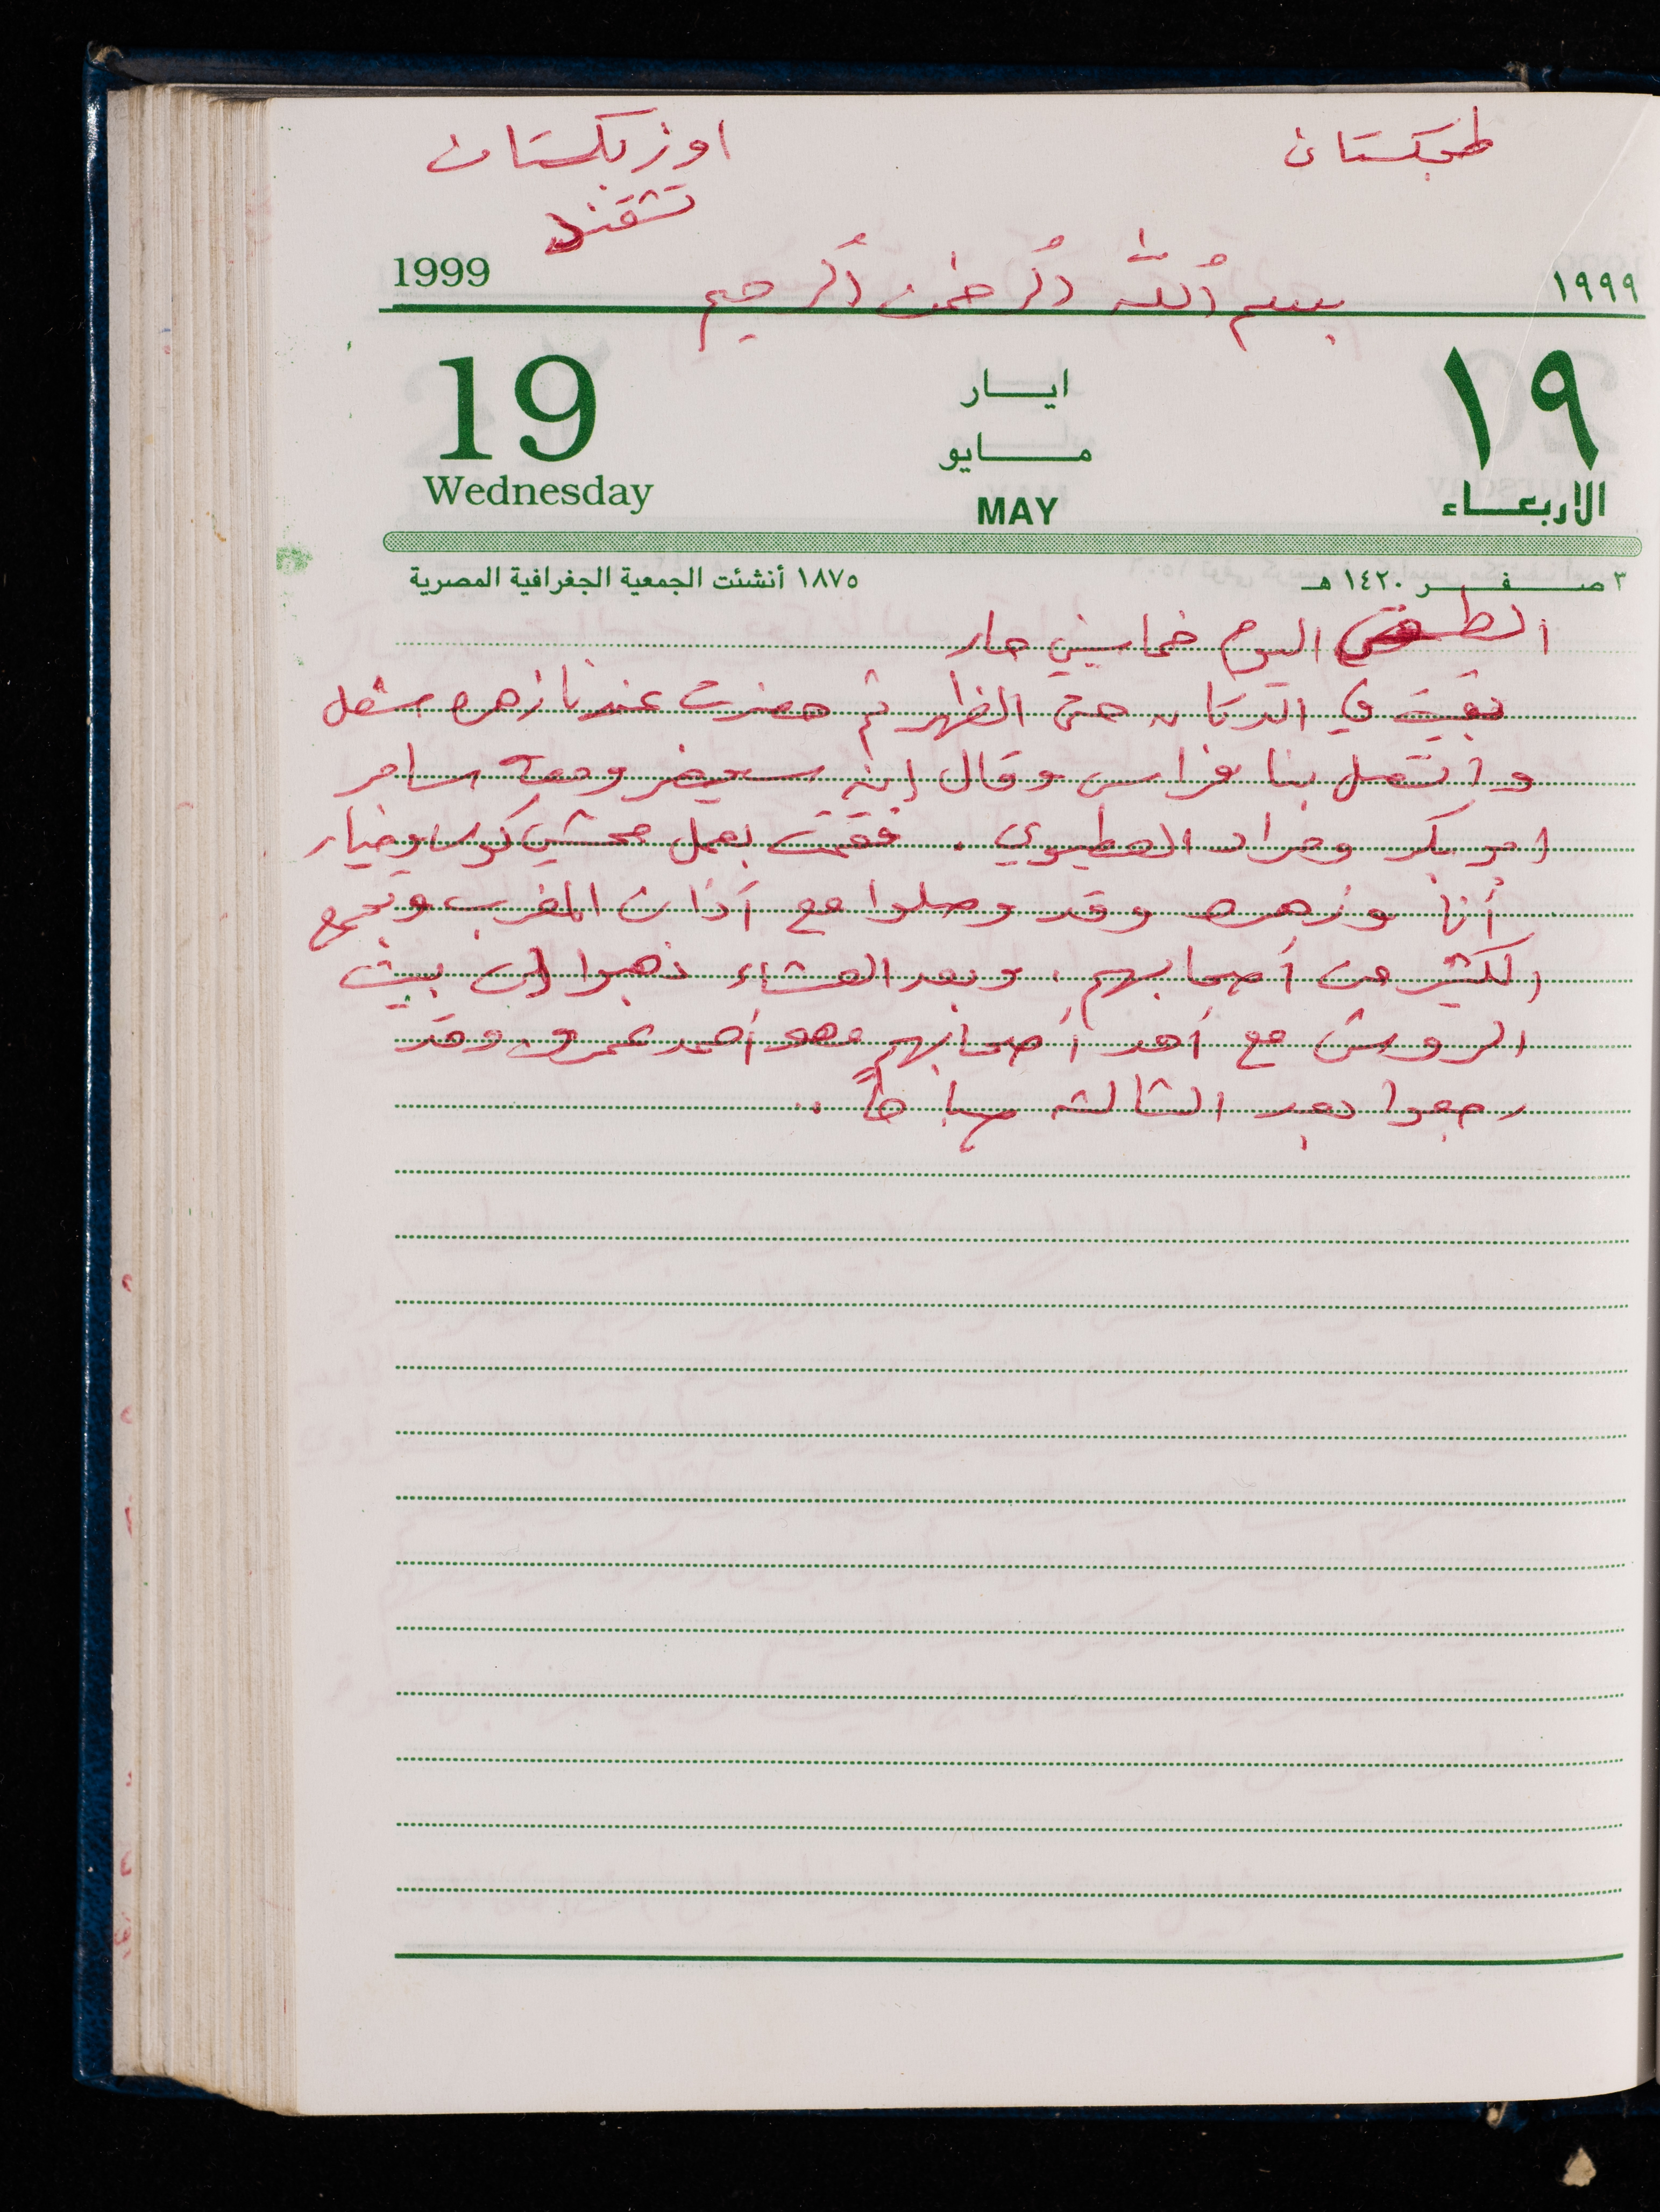 طجكستان
اوزبكستان
تشقند
بسم الله الرحمن الرحيم
1999
١٩٩٩
19
ايـــار
١٩
Wednesday
مـــايو
MAY
الاربعـــاء
٣ صـــفـــر ١٤٢٠ هـ
١٨٧٥ أنشئت الجمعية الجغرافية المصرية
الطقس اليوم خماسيني حار
بقيت في الدكان حتى الظهر ثم حضرت عندنا زهره
واتصل بنا فراس وقال إنه سيحضر ومعه سامر
ابو بكر ومراد العطيوي . فقمت بعمل محشي كوسا وخيار
أنا وزهره وقد وصلوا مع آذان المغرب وتجمع
الكثير من أصحابهم . وبعد العشاء ذهبوا إلى بيت
الروش مع أحد أصحابهم وهو أحمد عمرو وقد
رجعوا بعد الثالثه صباحاً ..